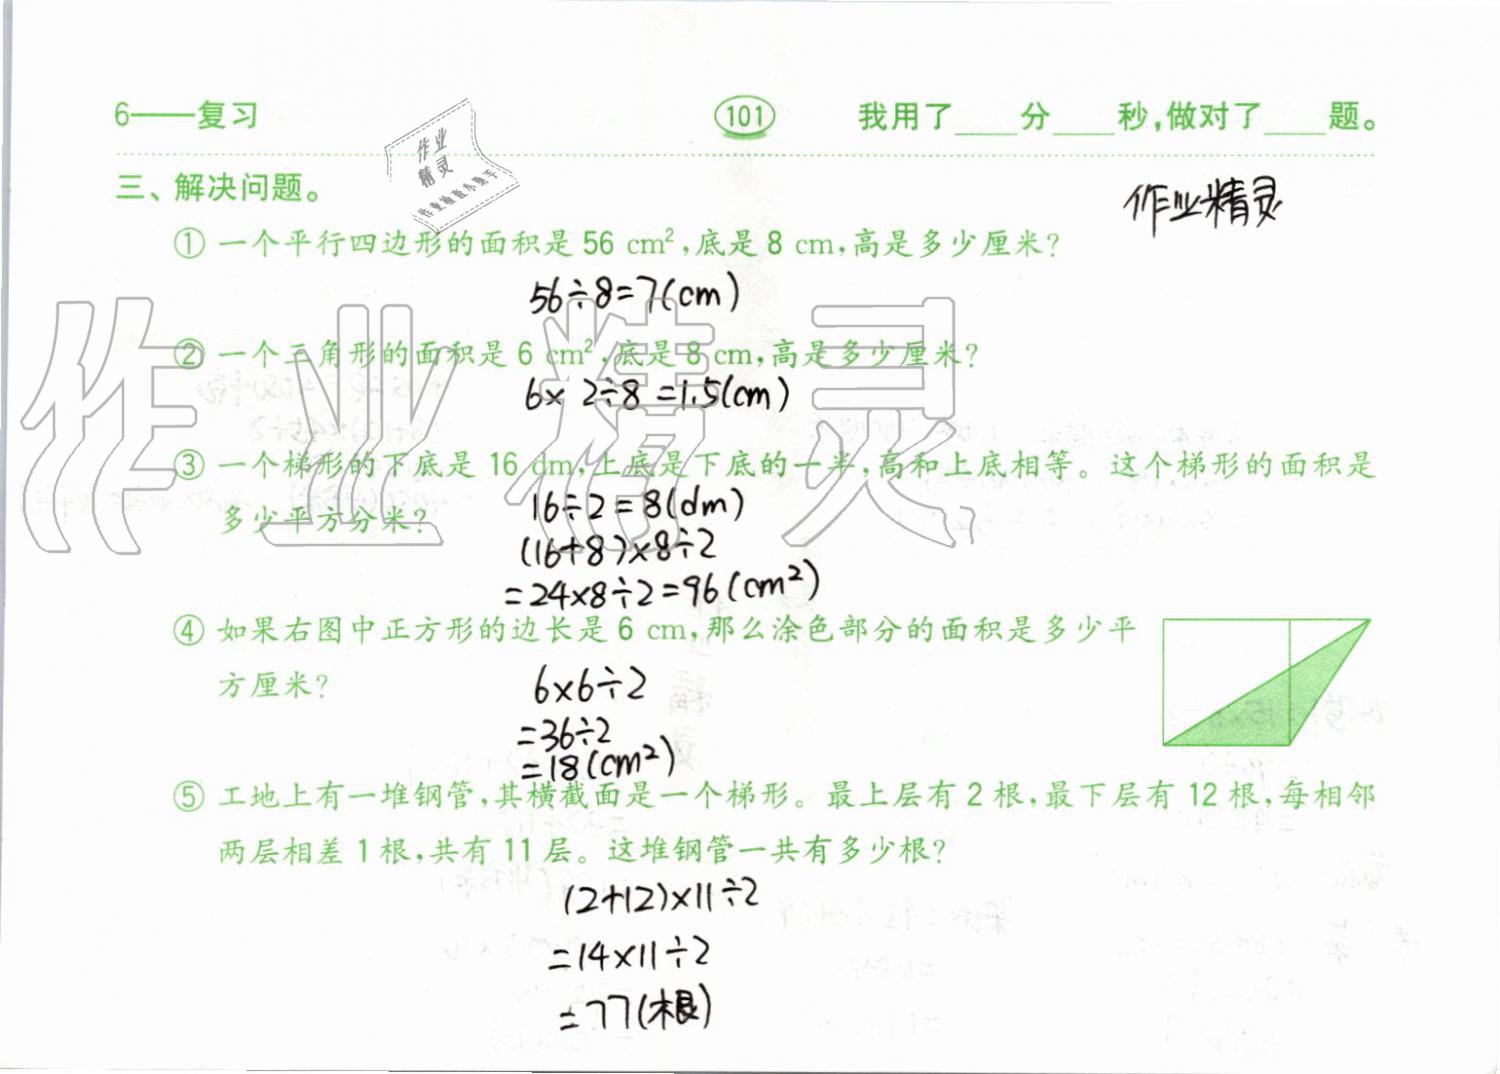 6——复习
101
我用了____分____秒,做对了____题。
作业
精灵
作业检查小帮手
三、解决问题。
作业精灵
① 一个平行四边形的面积是 56 cm²,底是 8 cm,高是多少厘米?
56÷8=7(cm)
② 一个三角形的面积是 6 cm²,底是 8 cm,高是多少厘米?
6× 2÷8 =1.5(cm)
作业精灵
③ 一个梯形的下底是 16 dm,上底是下底的一半,高和上底相等。这个梯形的面积是
多少平方分米?
16÷2=8(dm)
(16+8)×8÷2
=24×8÷2=96(cm²)
④ 如果右图中正方形的边长是 6 cm,那么涂色部分的面积是多少平
方厘米?
6×6÷2
=36÷2
=18(cm²)
⑤ 工地上有一堆钢管,其横截面是一个梯形。最上层有 2 根,最下层有 12 根,每相邻
两层相差 1 根,共有 11 层。这堆钢管一共有多少根?
(2+12)×11÷2
=14×11÷2
=77(根)